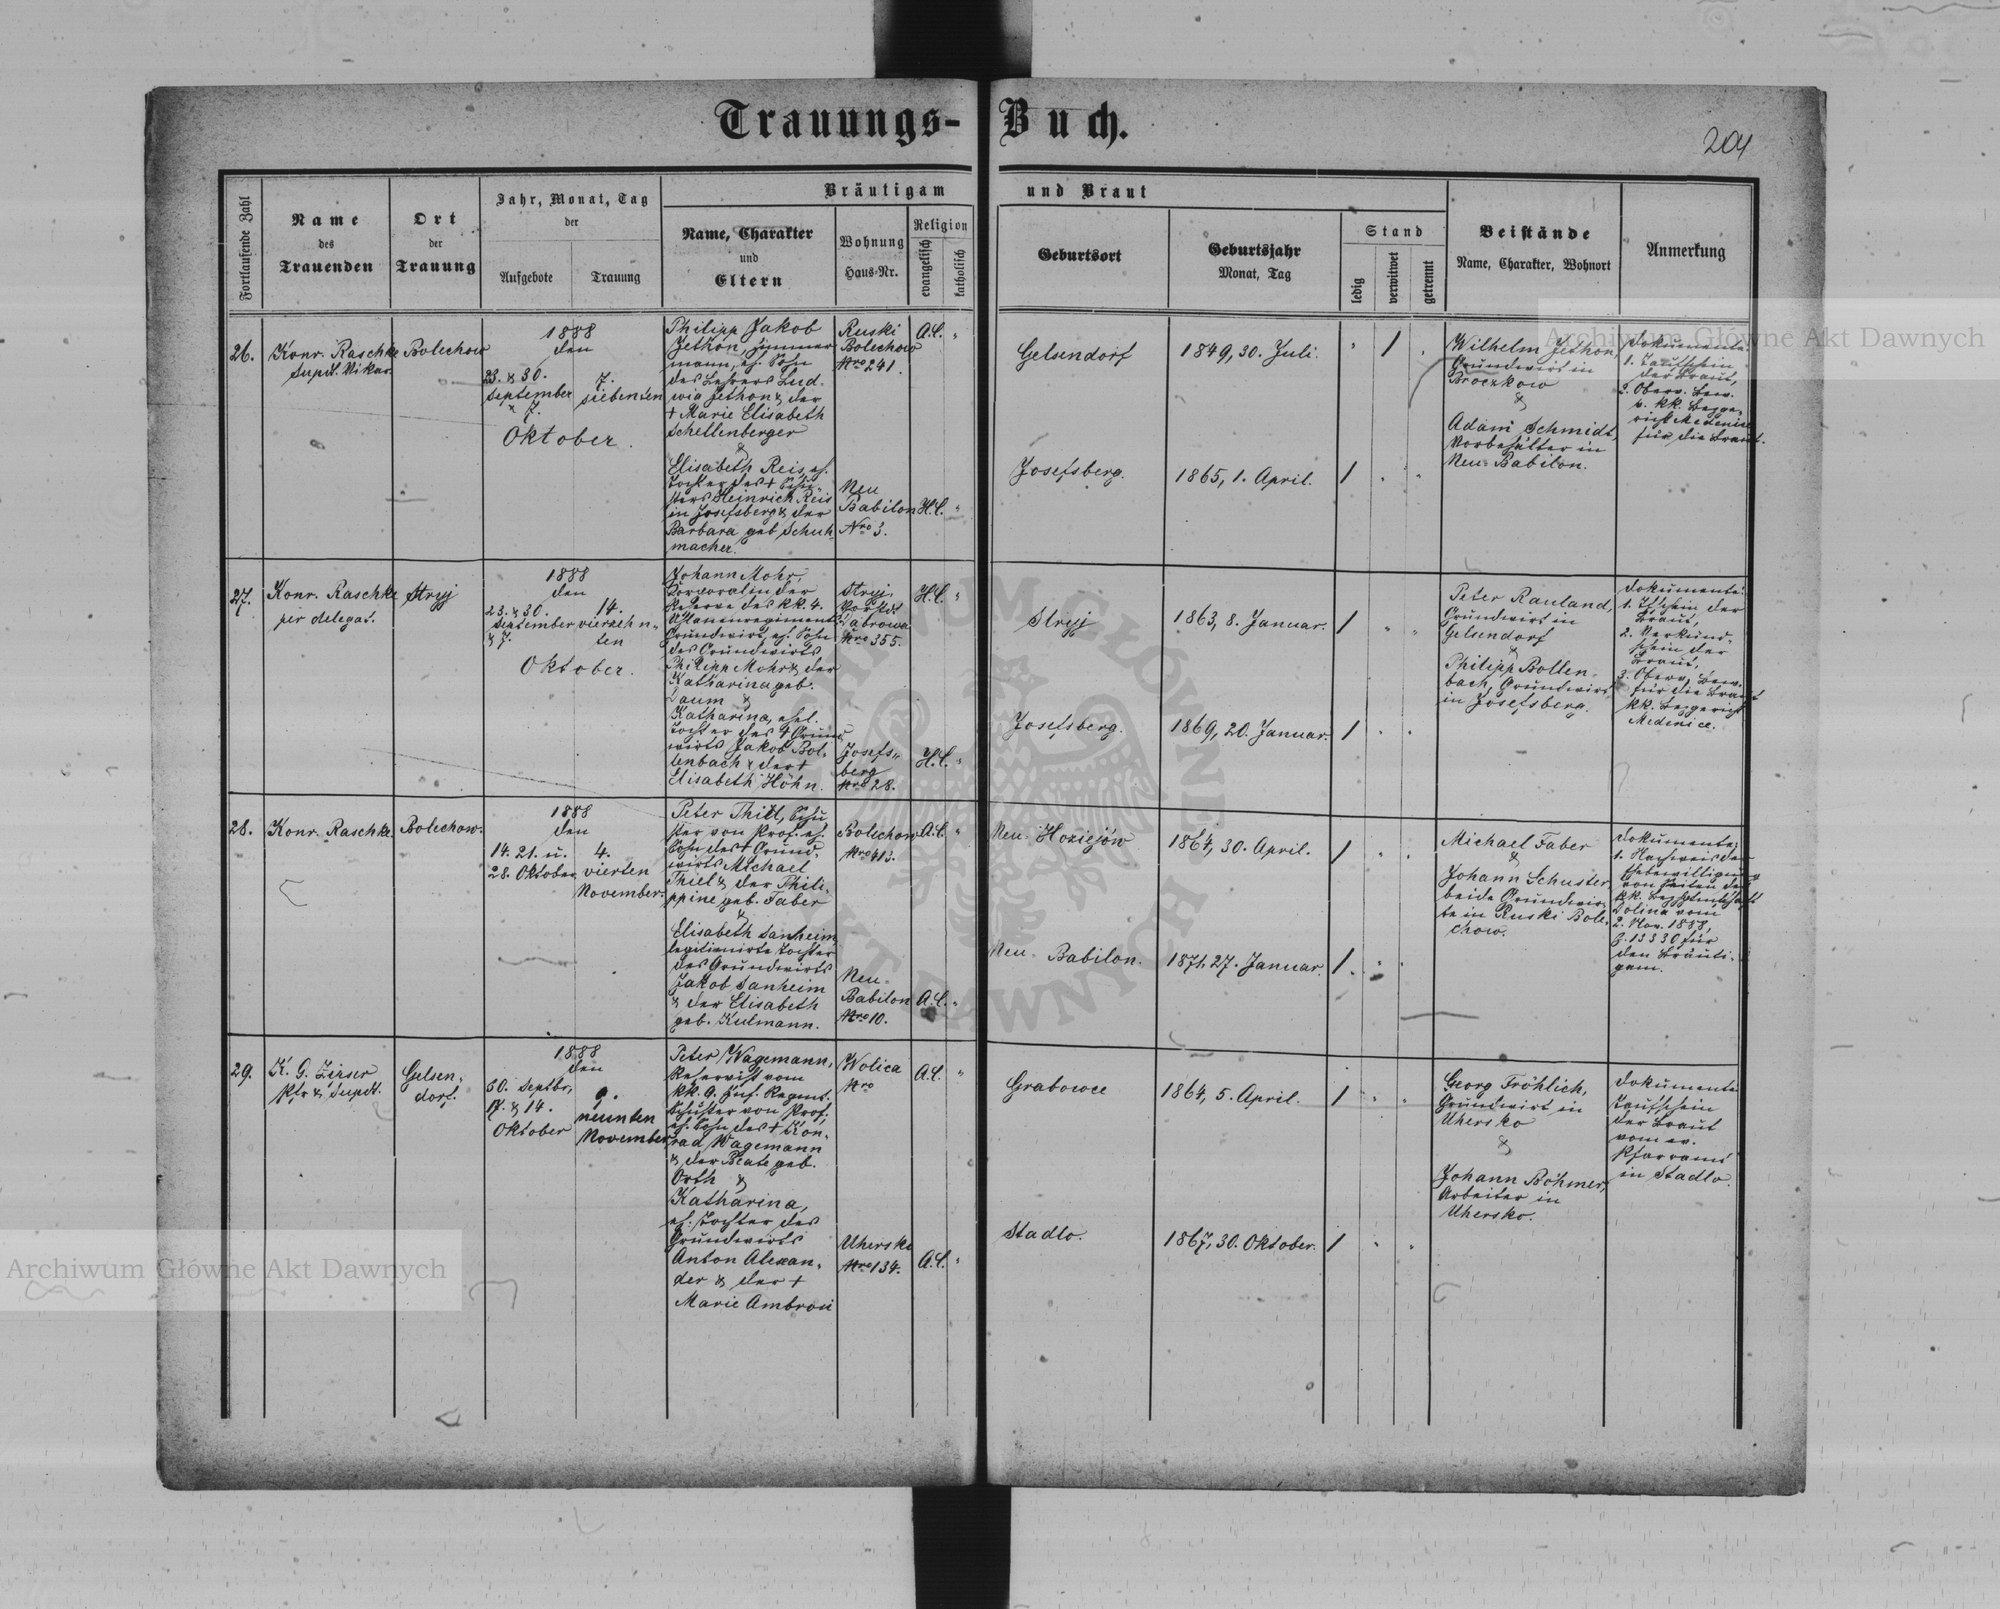 Trauungs-Buch.
204
Fortlaufende Zahl
Name
des
Trauenden
Ort
der
Trauung
Jahr, Monat, Tag
der
Aufgebote
Trauung
Bräutigam und Braut
Name, Charakter
und
Eltern
Wohnung
Haus-Nr.
Religion
evangelisch
katholisch
Geburtsort
Geburtsjahr
Monat, Tag
Stand
ledig
verwitwet
getrennt
Beistände
Name, Charakter, Wohnort
Anmerkung
26.
Konr. Raschke
Supdt. Vikar.
Bolechow
1888
den
23. & 30.
September
& 7.
7.
siebenten
Oktober.
Philipp Jakob
Jethon, Zimmer
mann, eh. Sohn
des Lehrers Lud-
wig Jethon & der
+ Marie Elisabeth
Schellenberger
&
Elisabeth Reis, eh.
Tochter des + Schu-
sters Heinrich Reis
in Josefsberg & der
Barbara, geb. Schuh-
macher.
Ruski
Bolechow
Nro 241.
Neu
Babilon
Nro 3.
A.C.
H.C.
Gelsendorf
Josefsberg.
1849, 30. Juli.
1865, 1. April.
1
1
Wilhelm Jethon,
Grundwirt in
Broczkow
&
Adam Schmidt,
Vorbehälter in
Neu-Babilon.
Dokumente:
1. Taufschein
der Braut,
2. Oberv. Bew.
v. kk. Bezge-
richt Medenice
für die Braut.
27.
Konr. Raschke
per delegat.
Stryj
1888
den
23. & 30.
September
& 7.
14.
vierzehn-
ten
Oktober.
Johann Mohr,
Korporal in der
Reserve des kk. 4.
Uhlanenregiments
Grundwirt, eh. Sohn
des Grundwirts
Philipp Mohr & der
Katharina geb.
Daum &
Katharina, ehel.
Tochter des + Grund
wirts Jakob Bol-
lenbach & der +
Elisabeth Höhn.
Stryj,
Vorstdt
Labrowa
Nro 355.
Josefs-
berg
Nro 28.
H.C.
H.C.
Stryj
Josefsberg.
1863, 8. Januar.
1869, 20. Januar.
1
1
Peter Rauland,
Grundwirt in
Gelsendorf
&
Philipp Bollen-
bach, Grundwirt
in Josefsberg.
Dokumente:
1. Tfschein der
Braut,
2. Verkünd-
schein der
Braut,
3. Oberv. Bew.
für die Braut
kk. Bezgericht
Medenice.
28.
Konr. Raschke
Bolechow.
1888
den
14. 21. u.
28. Oktober
4.
vierten
November.
Peter Thiel, Schu
ster von Prof. eh.
Sohn des + Grund-
wirts Michael
Thiel & der Phili-
ppine geb. Faber
&
Elisabeth Sanheim
legitimirte Tochter
des Grundwirts
Jakob Sanheim
& der Elisabeth
geb. Kulmann.
Bolechow
Nro 413.
Neu-
Babilon
Nro 10.
A.C.
A.C.
Neu-Hoziejów
Neu-Babilon.
1864, 30. April.
1871, 27. Januar.
1
1
Michael Faber
&
Johann Schuster,
beide Grundwir-
te in Ruski Bole-
chow.
Dokumente:
1. Nachweis der
Ehebewilligung
von Seiten der
kk. Bezhptmschaft
Dolina vom
2. Nov. 1888,
Z. 13330 für
den Bräuti-
gam.
29.
K. G. Zirser
Pfr & Supdt.
Gelsen-
dorf.
1888
den
30. Septbr,
7. & 14.
Oktober
9.
neunten
November
Peter Wagemann,
Reservist vom
kk. 9. Inf. Regmt.
Schuster von Prof.
eh. Sohn des + Kon-
rad Wagemann
& der Beate geb.
Orth &
Katharina,
eh. Tochter des
Grundwirts
Anton Alexan-
der & der +
Marie Ambrosi
Wolica
Nro
Uhersko
Nro 134.
A.C.
A.C.
Grabowce
Stadlo.
1864, 5. April.
1867, 30. Oktober.
1
1
Georg Fröhlich,
Grundwirt in
Uhersko
&
Johann Böhmer,
Arbeiter in
Uhersko.
Dokumente
Taufschein
der Braut
vom ev.
Pfarramt
in Stadlo.
Archiwum Główne Akt Dawnych
Archiwum Główne Akt Dawnych